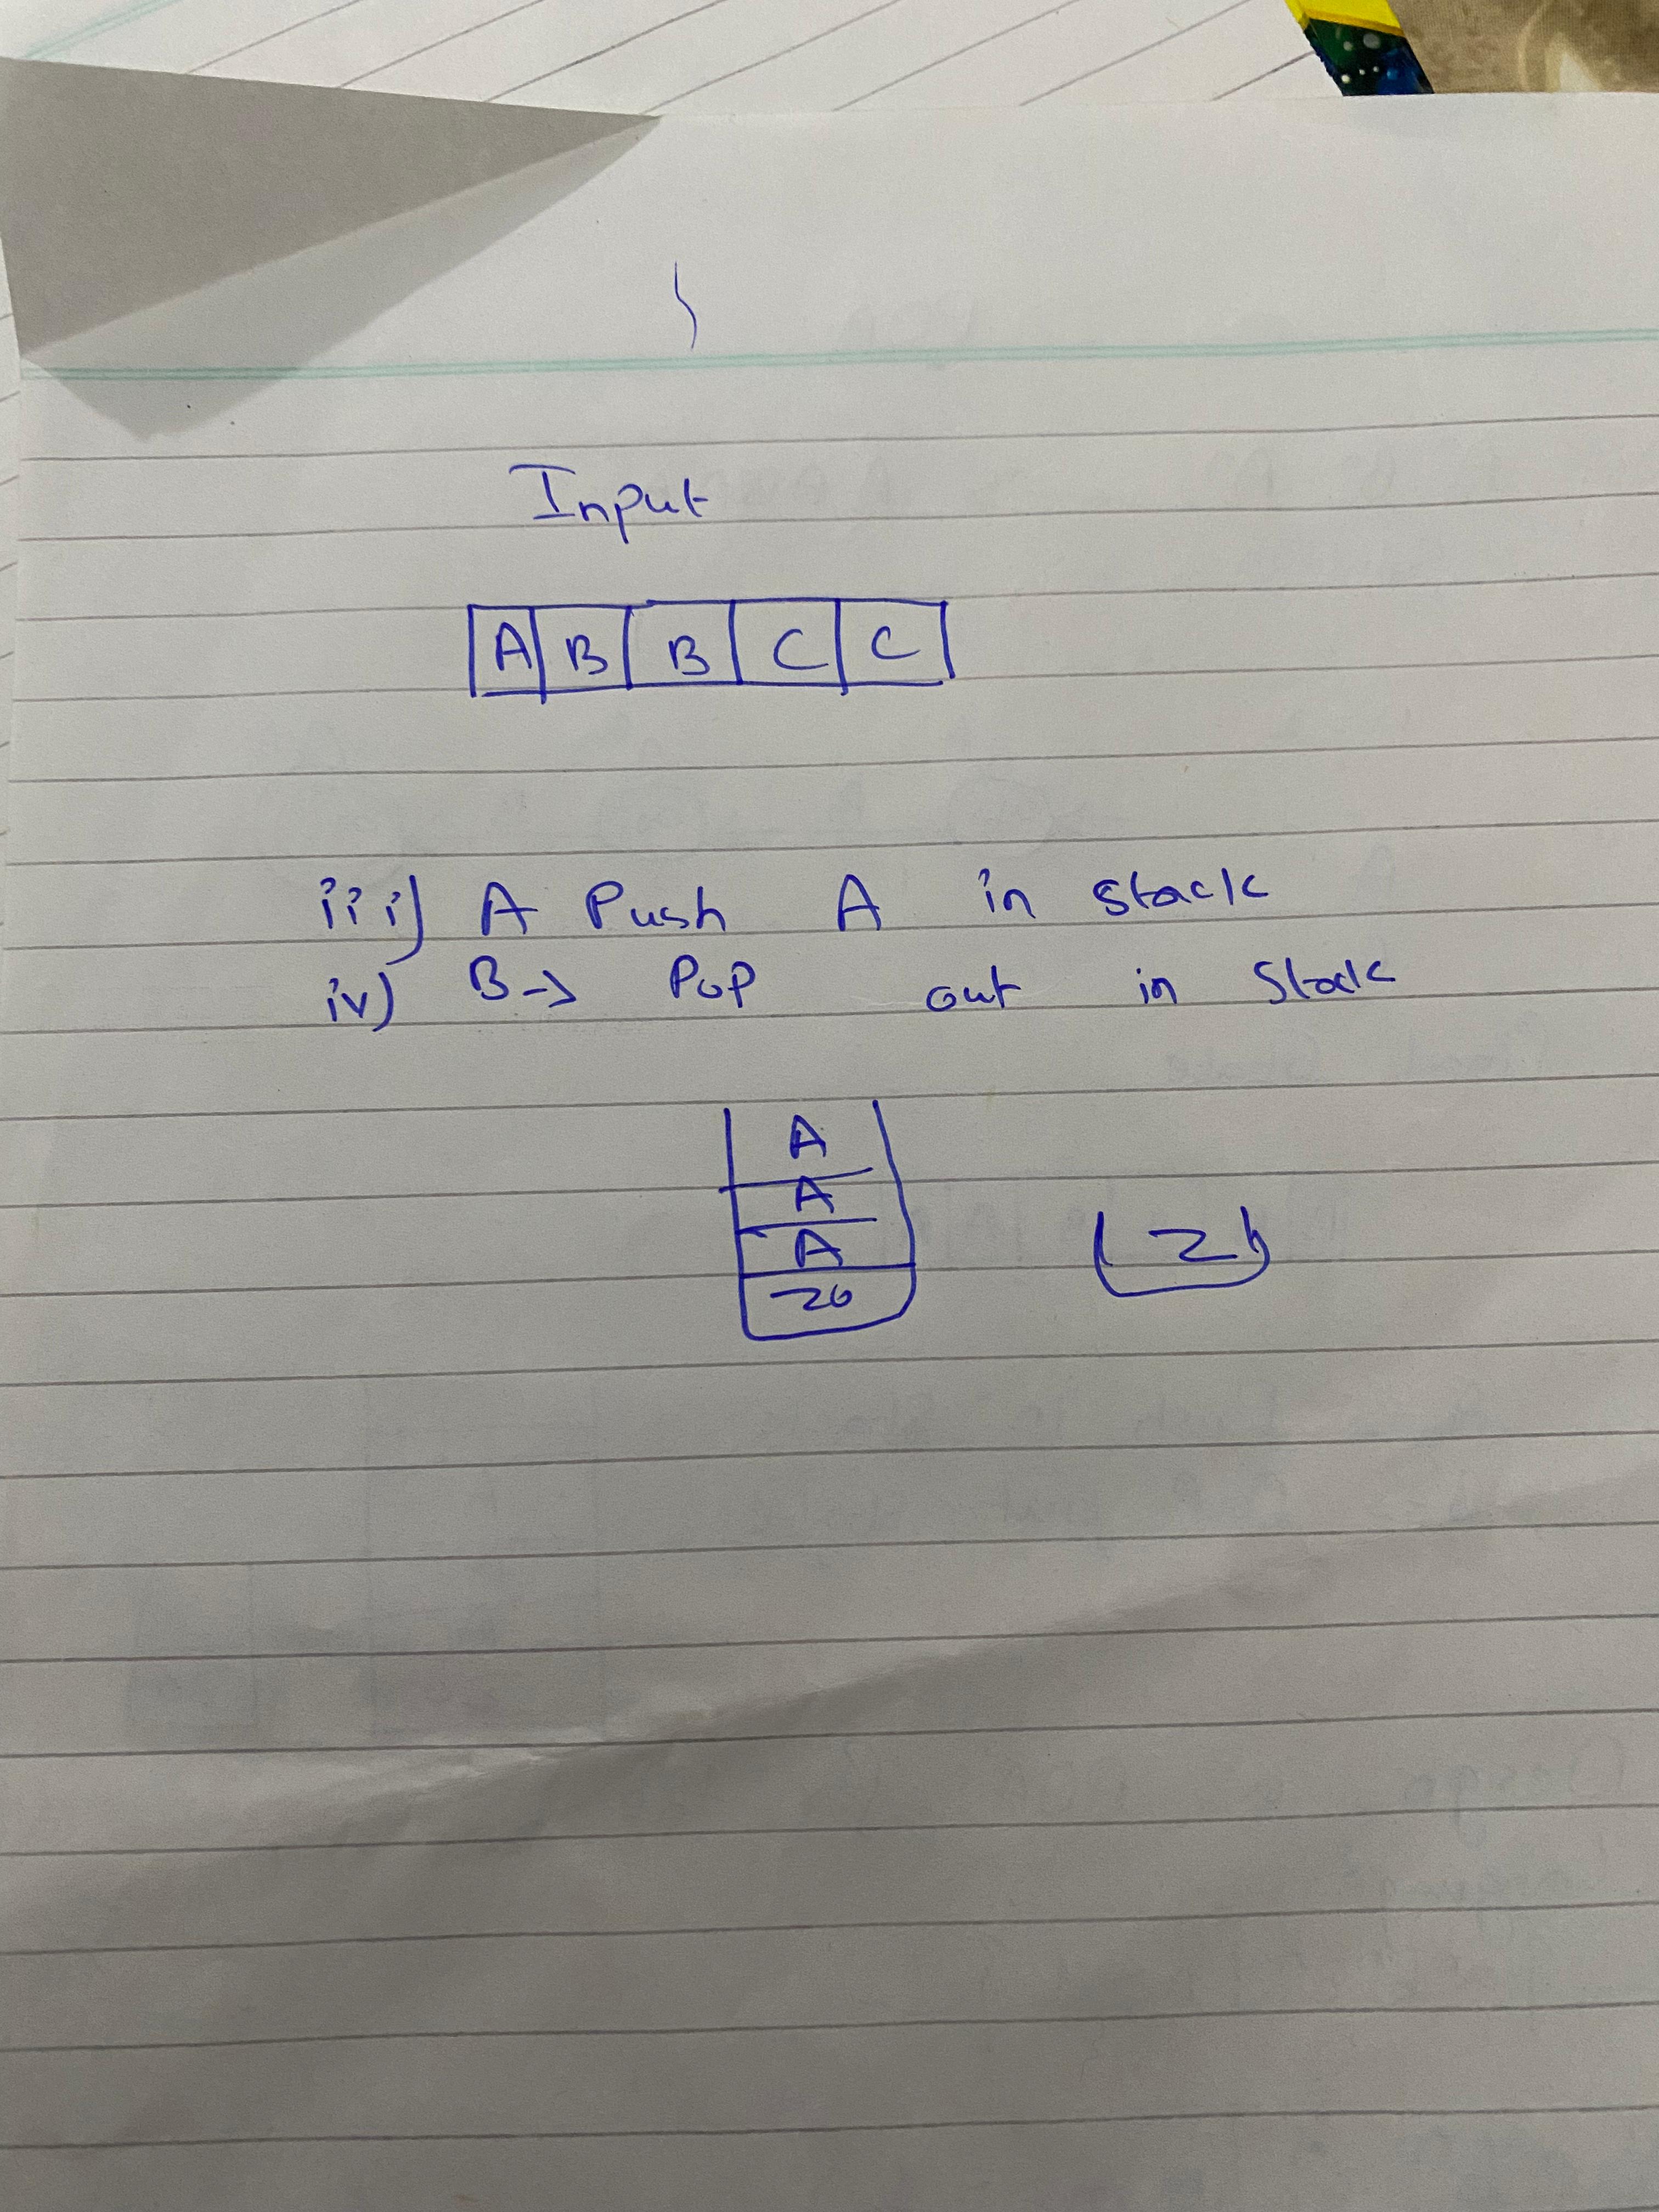 Input
A B B C C
iii) A Push A in stack
iv) B→ Pop out in Stack
A
A
A
20